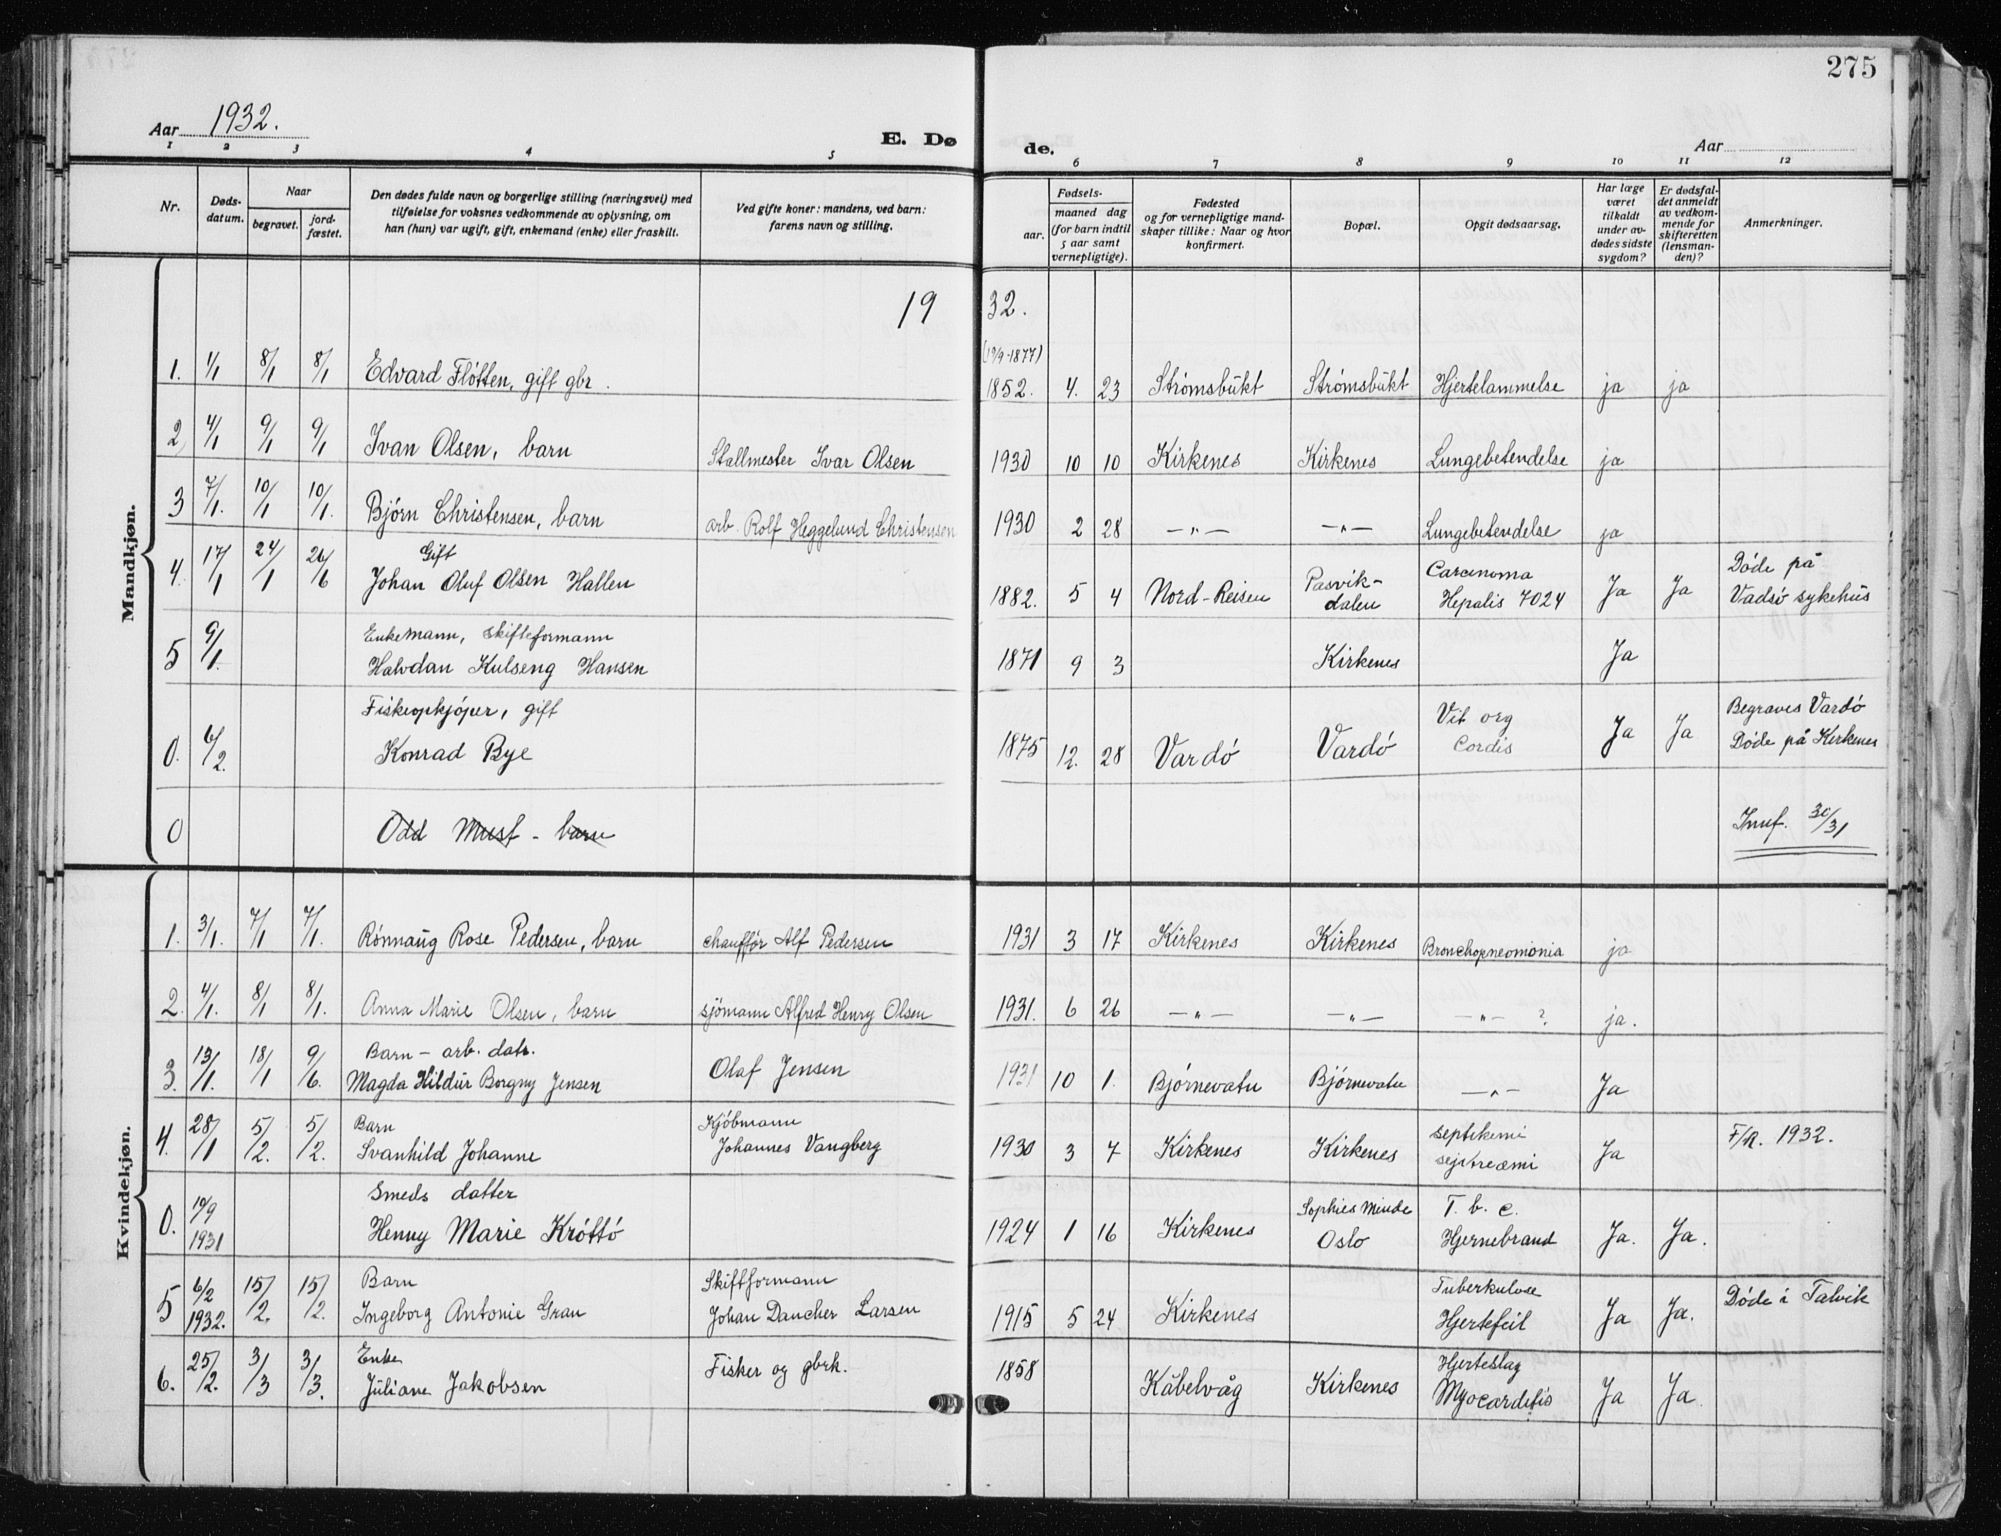 275
Aar 1932.
E. Døde.
Aar
1 2 3 4 5 6 7 8 9 10 11 12
Nr.
Døds-
datum.
Naar
begravet.
jord-
fæstet.
Den dødes fulde navn og borgerlige stilling (næringsvei) med
tilføielse for voksnes vedkommende av oplysning, om
han (hun) var ugift, gift, enkemand (enke) eller fraskilt.
Ved gifte koner: mandens, ved barn:
farens navn og stilling.
Fødsels-
aar.
maaned dag
(for barn indtil
5 aar samt
vernepligtige).
Fødested
og for vernepligtige mand-
skaper tillike: Naar og hvor
konfirmert.
Bopæl.
Opgit dødsaarsag.
Har læge
været
tilkaldt
under av-
dødes sidste
sygdom?
Er dødsfal-
det anmeldt
av vedkom-
mende for
skifteretten
(lensman-
den)?
Anmerkninger.
Mandkjøn.
1932.
(19/9-1877)
1. 1/1 8/1 8/1 Edvard Flötten, gift gbr. 1852. 4. 23 Strømsbukt Strømsbukt Hjertelammelse ja ja
2 4/1 9/1 9/1 Ivan Olsen, barn Stallmester Ivar Olsen 1930 10 10 Kirkenes Kirkenes Lungebetendelse ja
3 7/1. 10/1 10/1. Bjørn Christensen, barn arb. Rolf Heggelund Christensen 1930 2 28 —„— —„— Lungebetendelse ja
Gift Carcinoma Døde på
4. 17/1 24/1 26/6 Johan Oluf Olsen Hallen 1882. 5 4 Nord-Reisen Pasvik-
dalen Hepalis 7024 Ja Ja Vadsø sykehus
Enkemann, skifteformann
5 9/1. Halvdan Kulseng Hansen 1871 9 3 Kirkenes Ja
Fiskeopkjøper, gift Vit org Begraves Vardø
0. 6/2. Konrad Bye 1875 12. 28 Vardø Vardø Cordis Ja Ja Døde på Kirkenes
0 Odd - barn 30/31
Kvindekjøn.
1. 3/1. 7/1 7/1. Rønnaug Rose Pedersen, barn chauffør Alf Pedersen 1931 3 17 Kirkenes Kirkenes Bronchopneomonia ja
2. 4/1. 8/1 8/1. Anna Marie Olsen, barn sjömann Alfred Henry Olsen 1931. 6 26 —„— —„— —„— ? ja.
Barn - arb. datr.
3. 13/1. 18/1 9/6. Magda Hildur Borgny Jensen Olaf Jensen 1931 10 1. Bjørnevatn Bjørnevatn —„— Ja
Barn Kjøbmann septikemi
4. 28/1 5/2. 5/2. Svanhild Johanne Johannes Vangberg 1930 3 7 Kirkenes Kirkenes Ja F/R. 1932.
Smeds datter Sophies Minde T. b. c.
0. 10/9 1931 Henny Marie Krøttø 1924 1 16 Kirkenes Oslo Hjernebrand Ja. Ja.
Barn Skiftformann Tuberkulose
5 6/2 1932. 15/2. 15/2. Ingeborg Antonie Gran Johan Daucher Larsen 1915 5 24 Kirkenes Hjertefeil Ja Ja. Døde i Talvik
Enke Hjerteslag
6. 25/2. 3/3 3/3. Juliane Jakobsen Fisker og gbrk. 1858 Kåbelvåg Kirkenes Myocarditis Ja Ja.